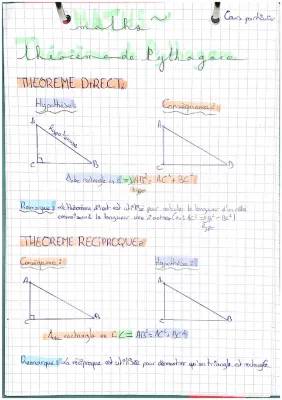 MATHS ~
maths
Cours particulier
Théorème de Pythagore
THEOREME DIRECT:
Hypothèse:
Conséquence:
A
hypoténuse
C
B
A
C
B
ABC rectangle en C => AB² = AC² + BC²
hyp
Remarque: le théorème direct est utilisé pour calculer la longueur d'un côté
connaissant la longueur des 2 autres (AC² = AB² - BC²)
hyp
THEOREME RECIPROQUE:
Conséquence:
Hypothèse:
A
C
B
A
C
B
ABC rectangle en C <= AB² = AC² + BC²
Remarque: la réciproque est utilisée pour démontrer qu'un triangle est rectangle.